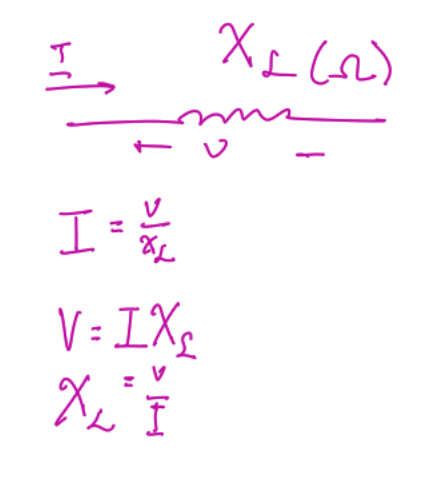 I
X_L (Ω)
← V —
I = V/X_L
V = I X_L
X_L = V/I